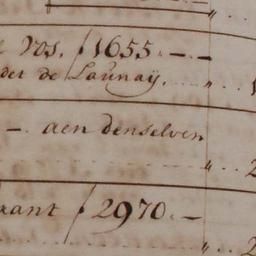 Vos, ƒ 1655 . - . -
der de Launaÿ.
- . aen denselven
ƒ 2970 . -